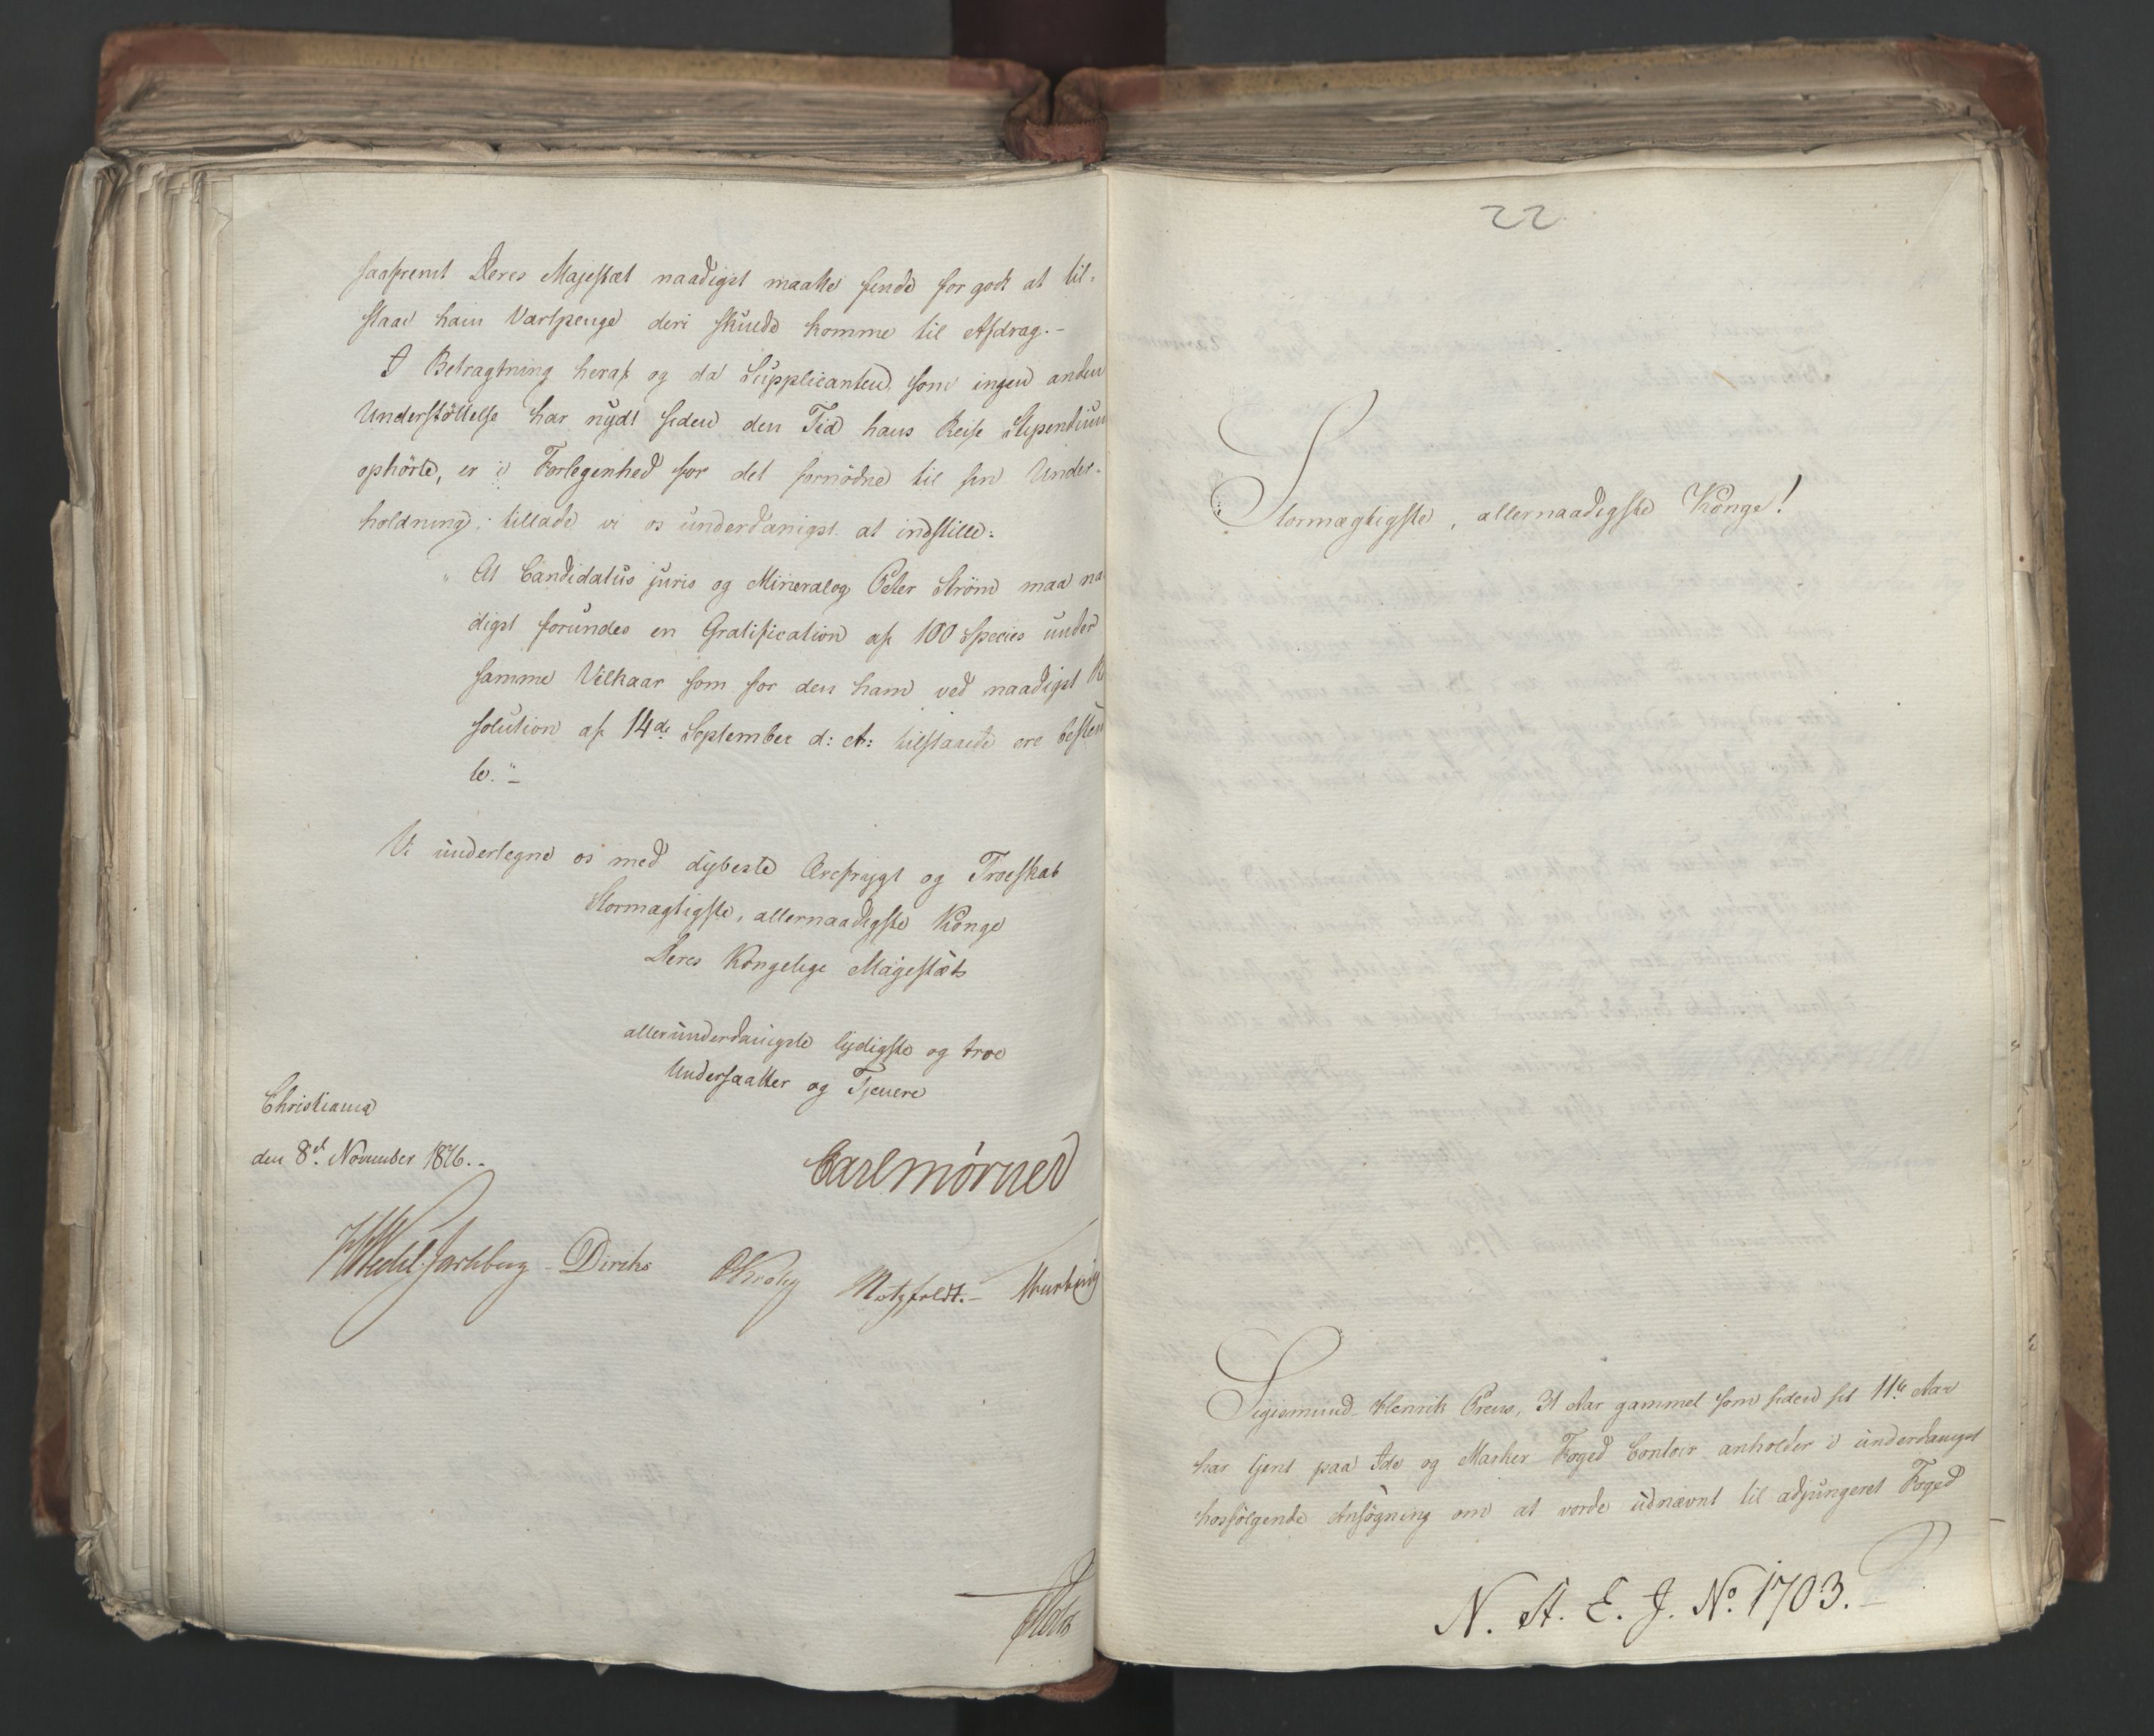 saafremt Deres Majestæt naadigst maatte finde for godt at til-
staae ham Vartpenge deri skulde komme til Afdrag.-
I Betragtning heraf og da Supplicanten, som ingen anden
Understøttelse har nydt siden den Tid hans Reise Stipendium
ophörte, er i Forlegenhed for det fornødne til sin Under-
holdning, tillade vi os underdanigst at indstille:
"At Candidatus juris og Mineralog Peter Ström maa na
digst forundes en Gratification af 100 Species under
samme Vilkaar som for den ham ved naadigst Re
solution af 14de September d: A: tilstaaede ere bestem
te."-
Vi undertegne os med dybeste Ærefrygt og Troeskab
Stormægtigste, allernaadigste Konge
Deres Kongelige Majestæts
allerunderdanigste lydigste og troe
Undersaatter og Tjenere
Christiania
den 8d. November 1816.-
Carl Mörner
HWedel Jarlsberg Diriks Krohg Motzfeldt.-
22
Stormægtigste, allernaadigste Konge!
Sigismund Henrik Preus, 31 Aar gammel som siden sit 11te Aar
har tjent paa Ide og Marker Foged Contoir anholder i underdanigst
hosfølgende Ansøgning om at vorde udnævnt til adjungeret Foged
N. A. E. J. No. 1703.